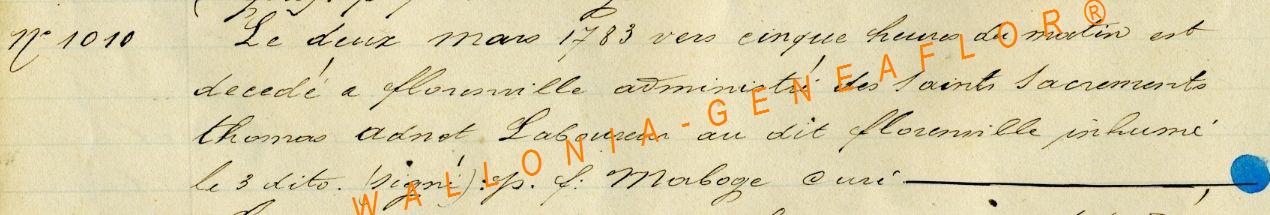 N° 1010 Le deux mars 1783 vers cinque heures du matin est
decedé a florenville administré des Saints Sacrements
thomas adnet Laboureur au dit florenville inhumé
le 3 dito. (signé) : p. f: Maboge Curé
WALLONIA-GENEAFLOR®